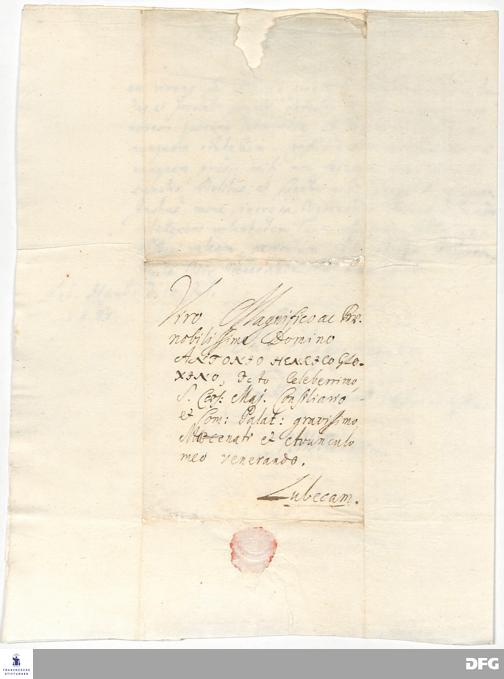 Viro Magnifico ac Præ-
nobilissimo Domino
ANTONIO HENRICO GLO-
XINO, Icto Celeberrimo,
S. Cæs: Maj. Consiliario
et Com: Palat: gravissimo,
Mæcenati et Avunculo
meo venerando.
Lubecam.
FRANCKESCHE
STIFTUNGEN
DFG